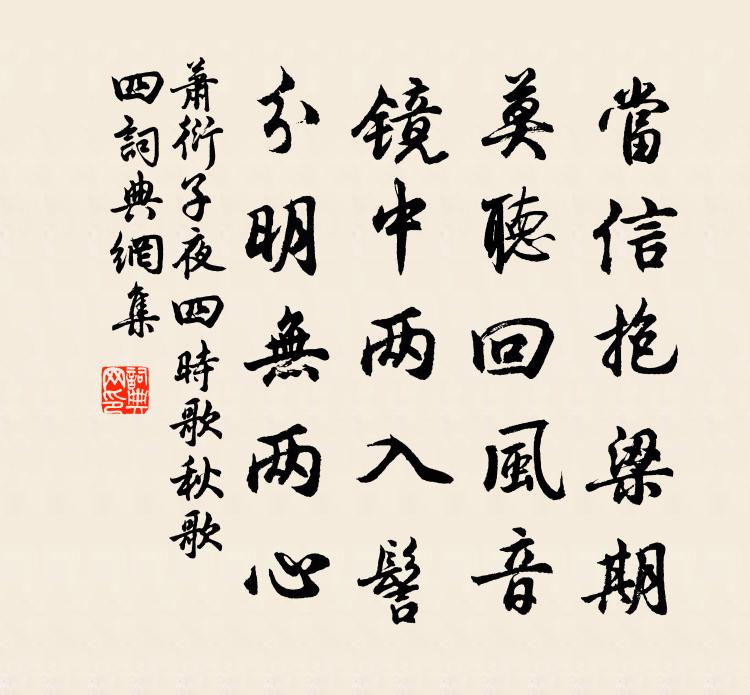 當信抱梁期
莫聽回風音
鏡中两入髻
分明無两心
萧衍子夜四時歌秋歌
四詞典網集
詞典網印